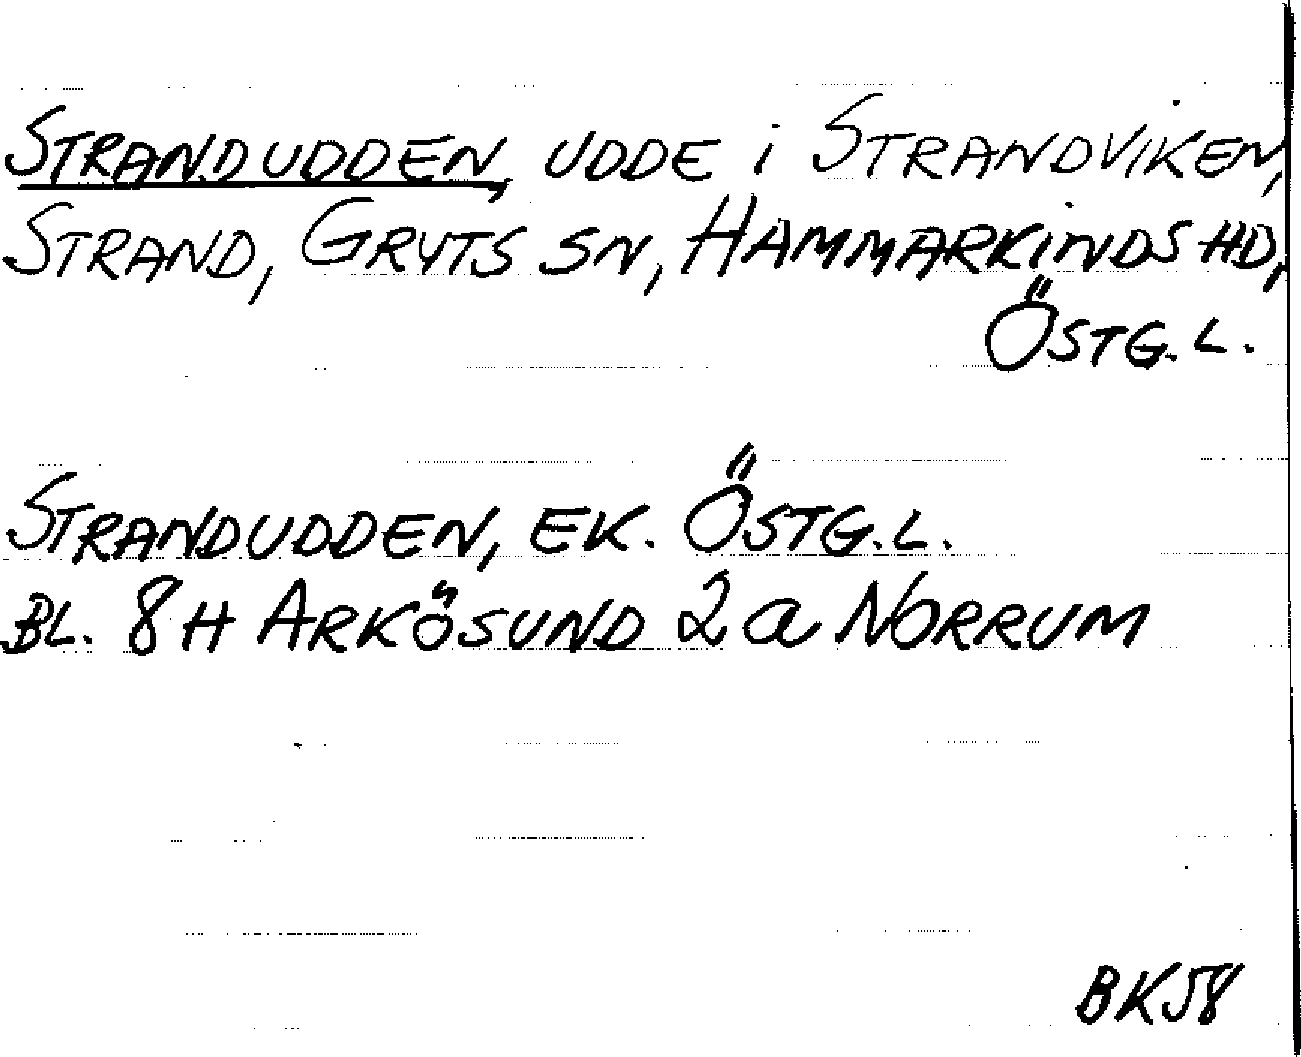 STRANDUDDEN, UDDE i STRANDVIKEN,
STRAND, GRYTS SN, HAMMARKINDS HD,
ÖSTG. L.
STRANDUDDEN, EK. ÖSTG. L.
BL. 8 H ARKÖSUND 2 a NORRUM
BK58